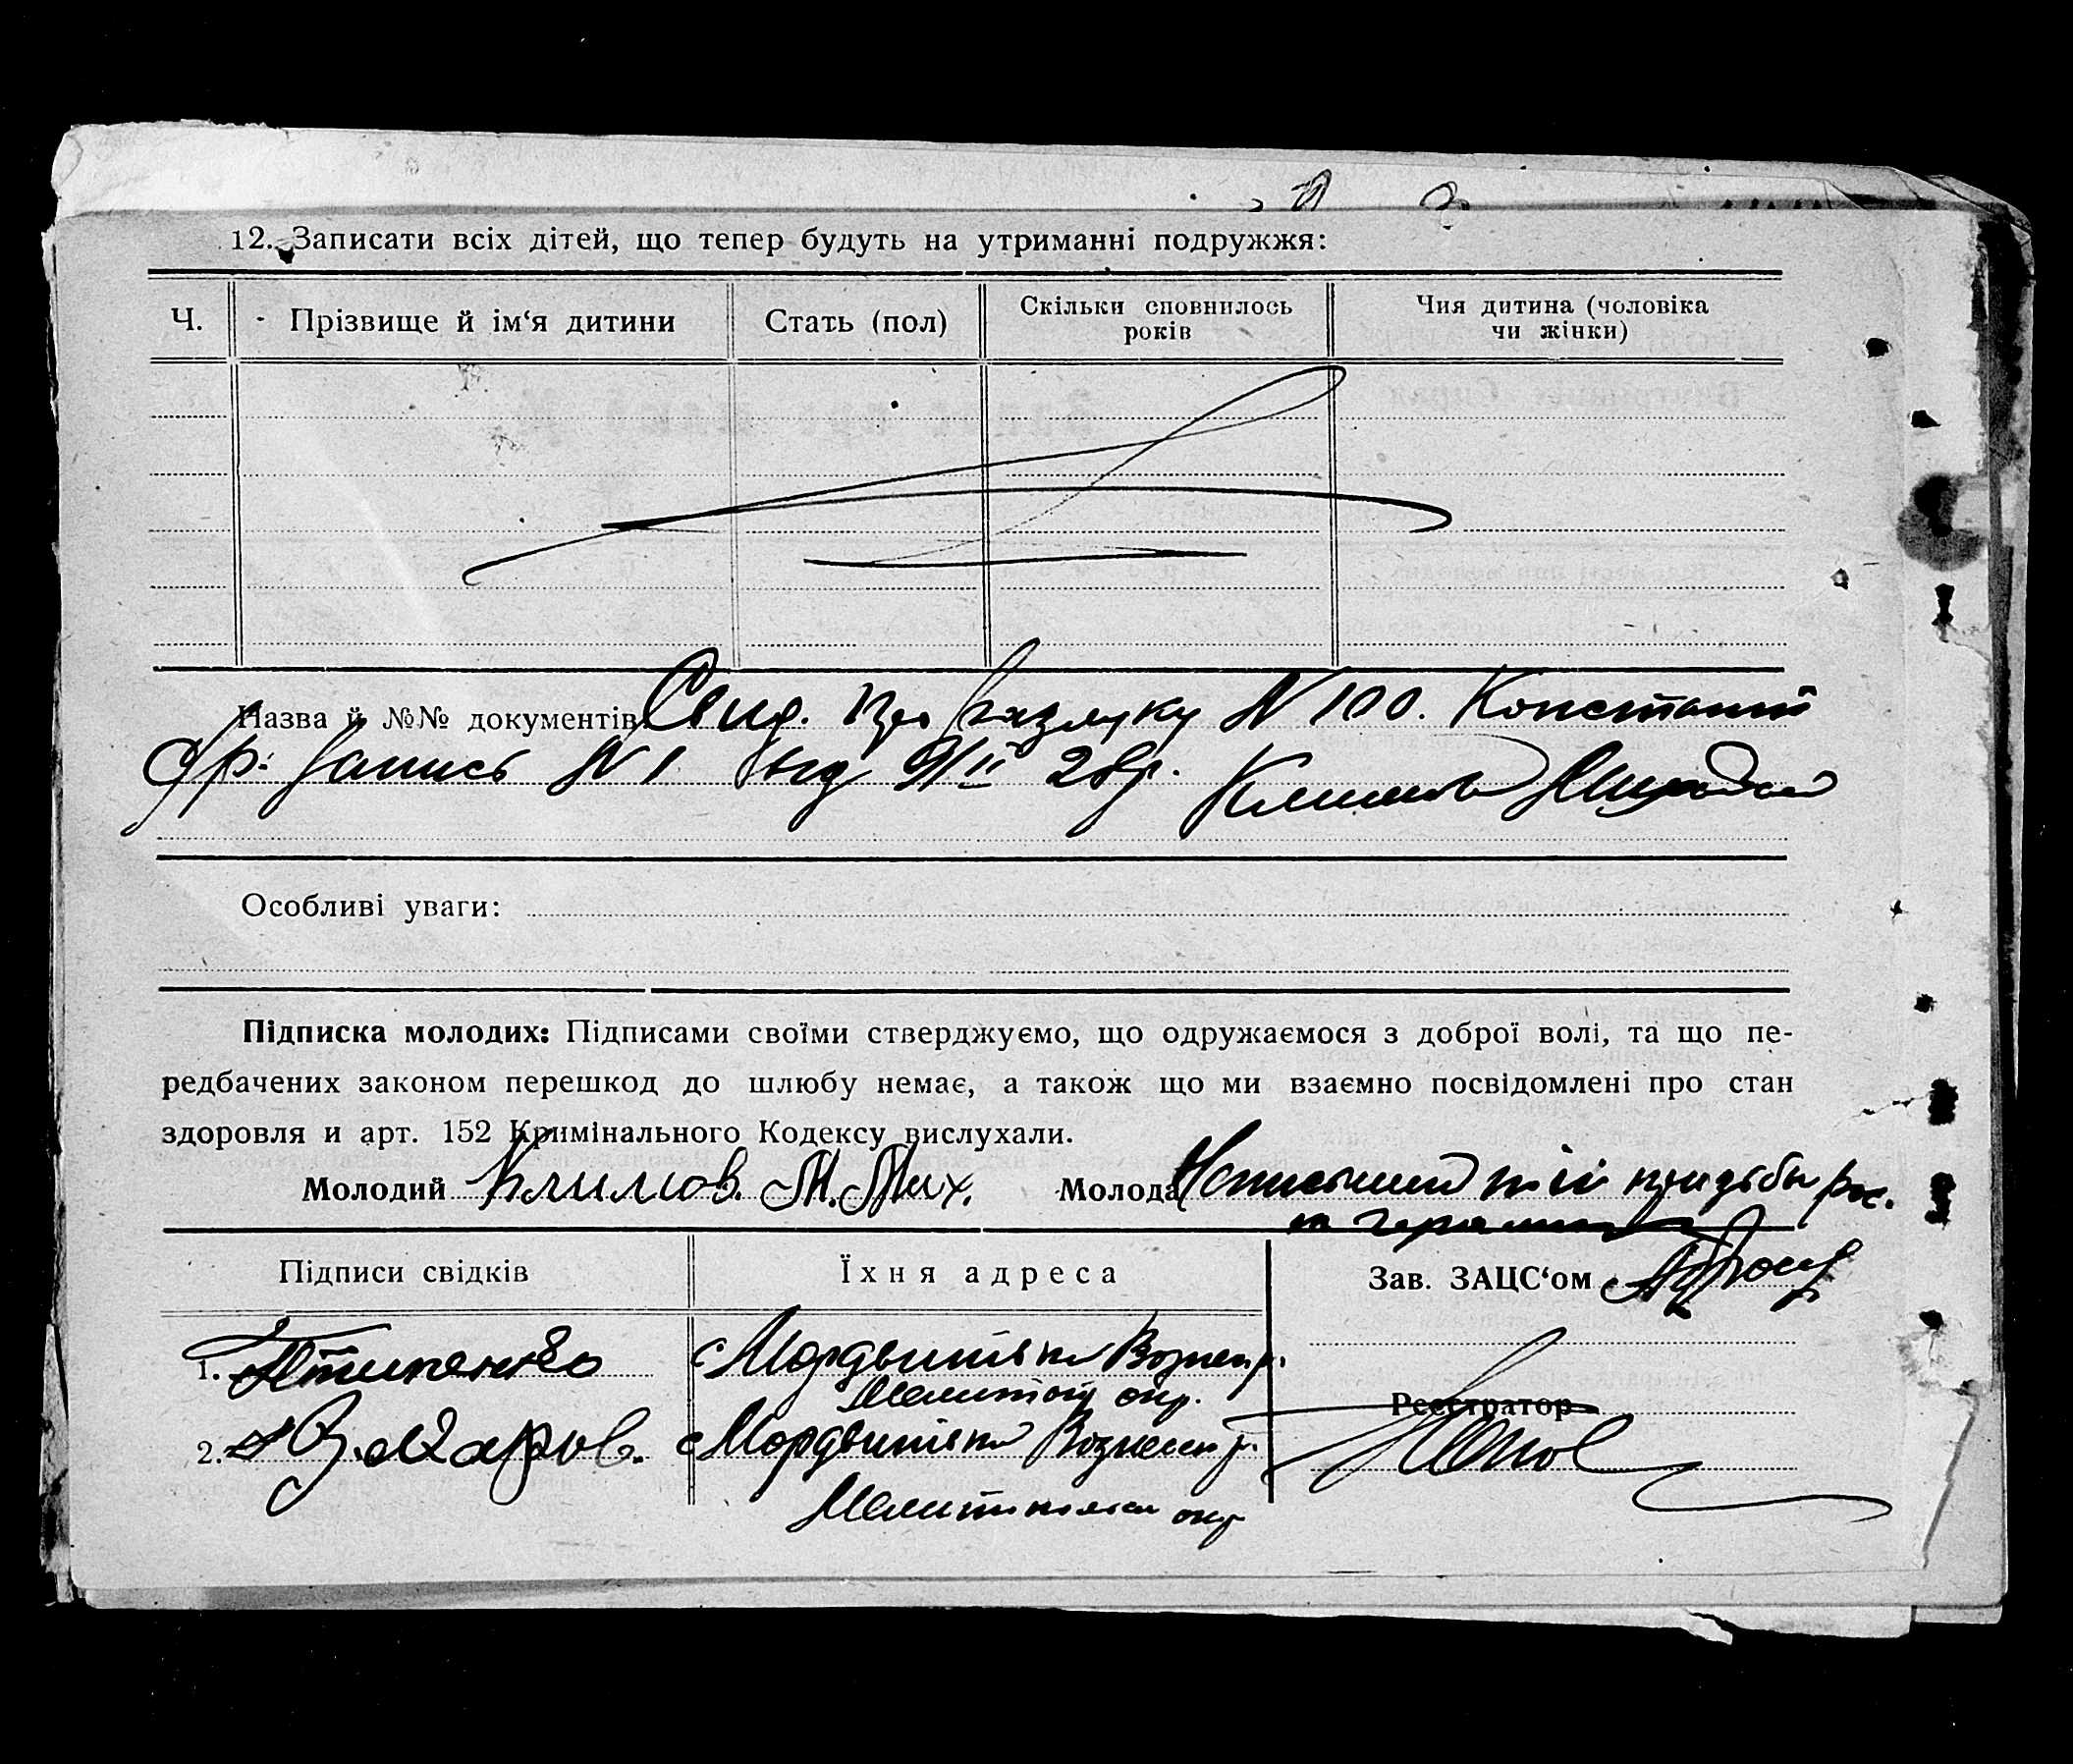 12. Записати всіх дітей, що тепер будуть на утриманні подружжя:
Ч.
Прізвище й ім‘я дитини
Стать (пол)
Скільки сповнилось
років
Чия дитина (чоловіка
чи жінки)
Назва й №№ документів: Свид. про разлуку N 100.
Запись N 1
Особливі уваги:
Підписка молодих: Підписами своїми стверджуємо, що одружаємося з доброї волі, та що пе-
редбачених законом перешкод до шлюбу немає, а також що ми взаємно посвідомлені про стан
здоровля и арт. 152 Кримінального Кодексу вислухали.
Молодий Климов. М. Мих. Молода
Підписи свідків
Їхня адреса
Зав. ЗАЦС‘ом
1.
с Мордвинівка Вознен р.
окр.
Реєстратор
2. Захаров.
с Мордвинівка Вознесен р.
окр